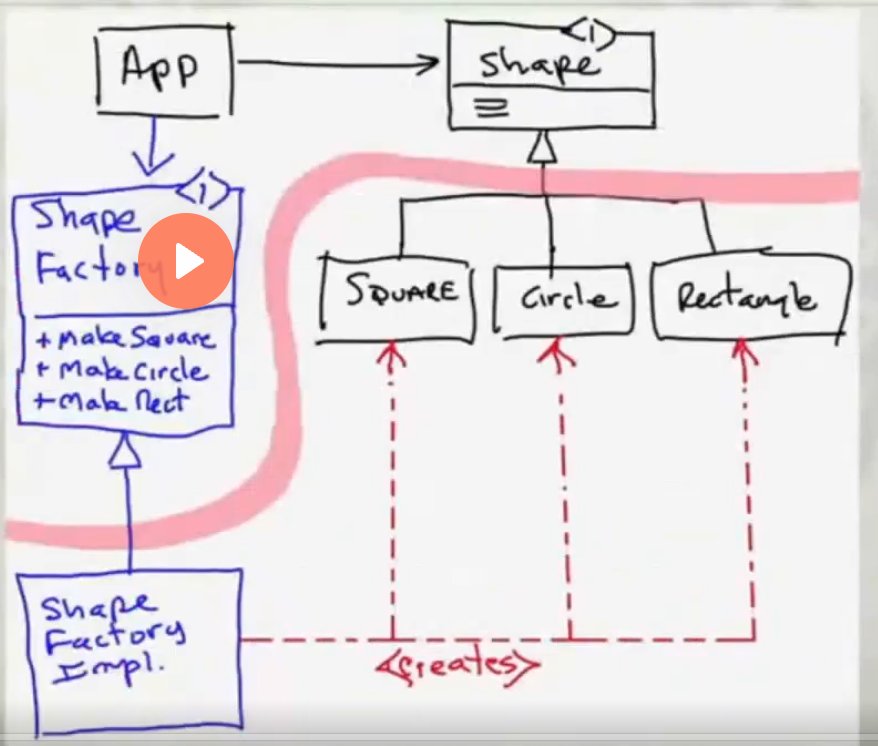 App
<I>
Shape
<I>
Shape
Factory
+ Make Square
+ Make Circle
+ Make Rect
SQUARE
Circle
Rectangle
Shape
Factory
Impl.
<creates>